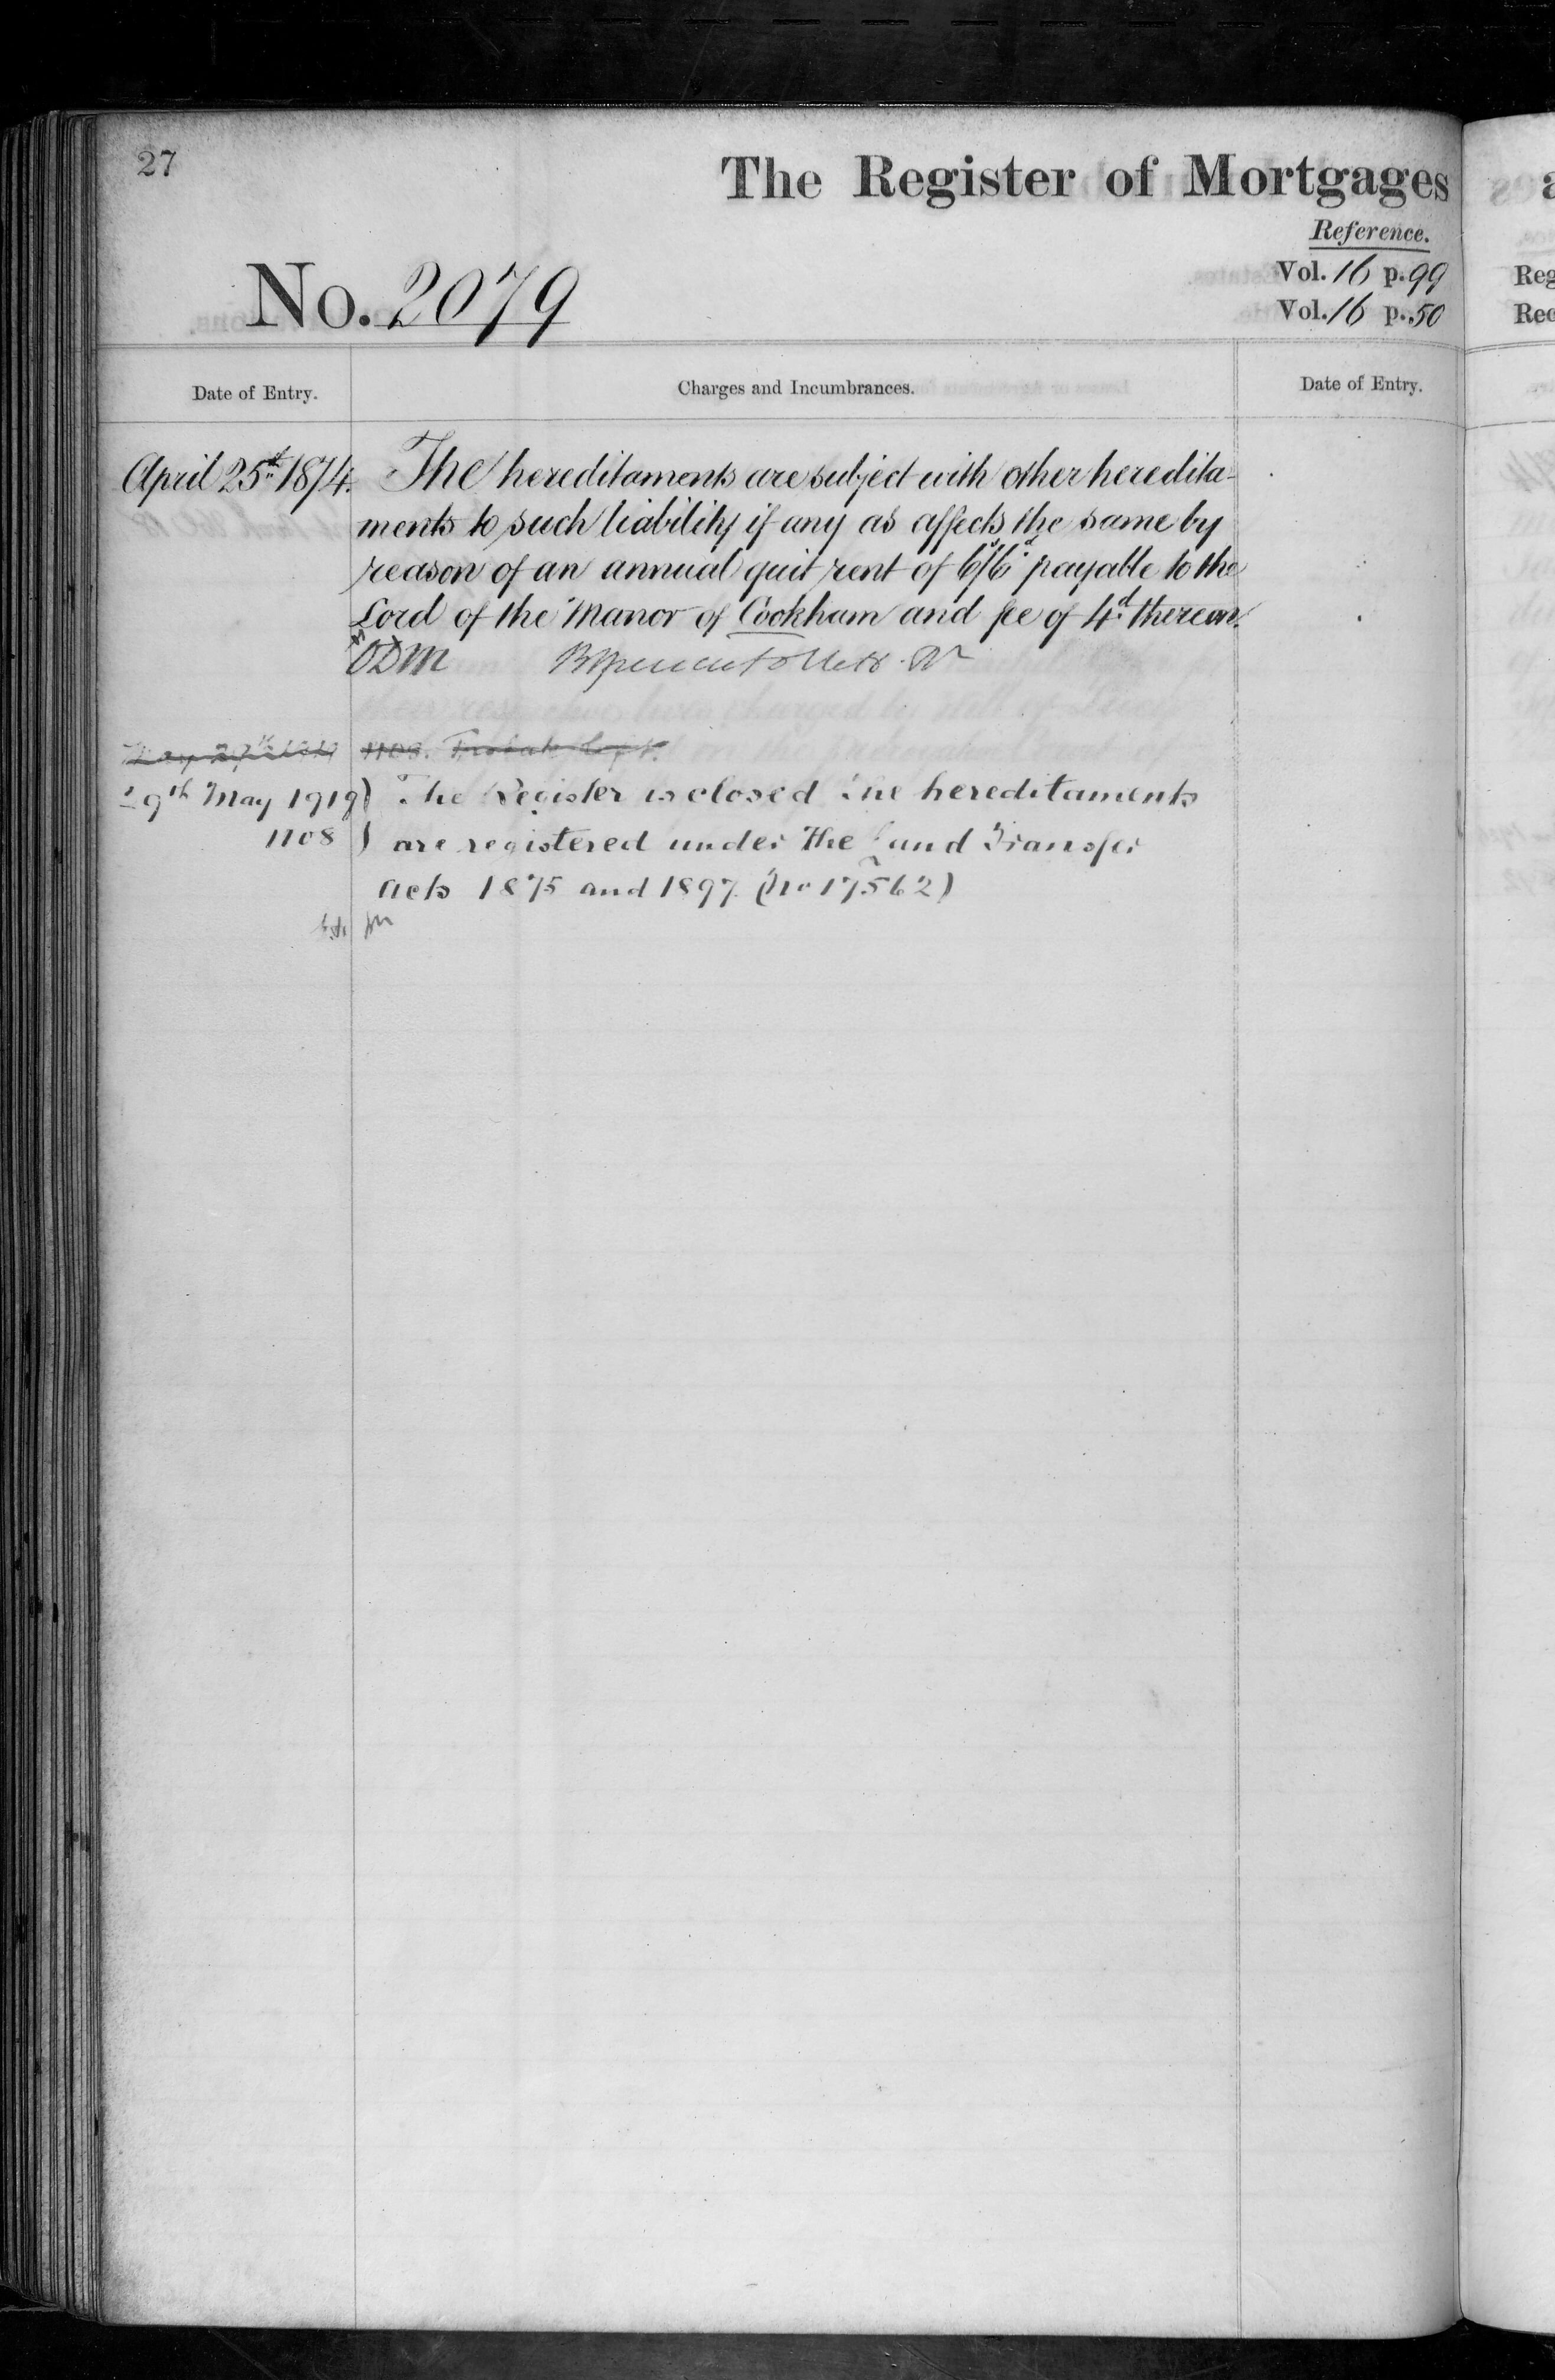 27
The Register of Mortgages
Reference.
Vol. 16 p. 99
Vol. 16 p. 50
No. 2079
Date of Entry.
Charges and Incumbrances.
Date of Entry.
April 25th 1874. The hereditaments are subject with other heredita-
ments to such liability if any as affects the same by
reason of an annual quit rent of 6s/6d payable to the
Lord of the Manor of Cookham and fee of 4d thereon.
ODM
May 29th 1919 1108.
29th May 1919 } The Register is closed The hereditaments
1108 } are registered under the Land Transfer
Acts 1875 and 1897. (No 17562)
Reg
Rec